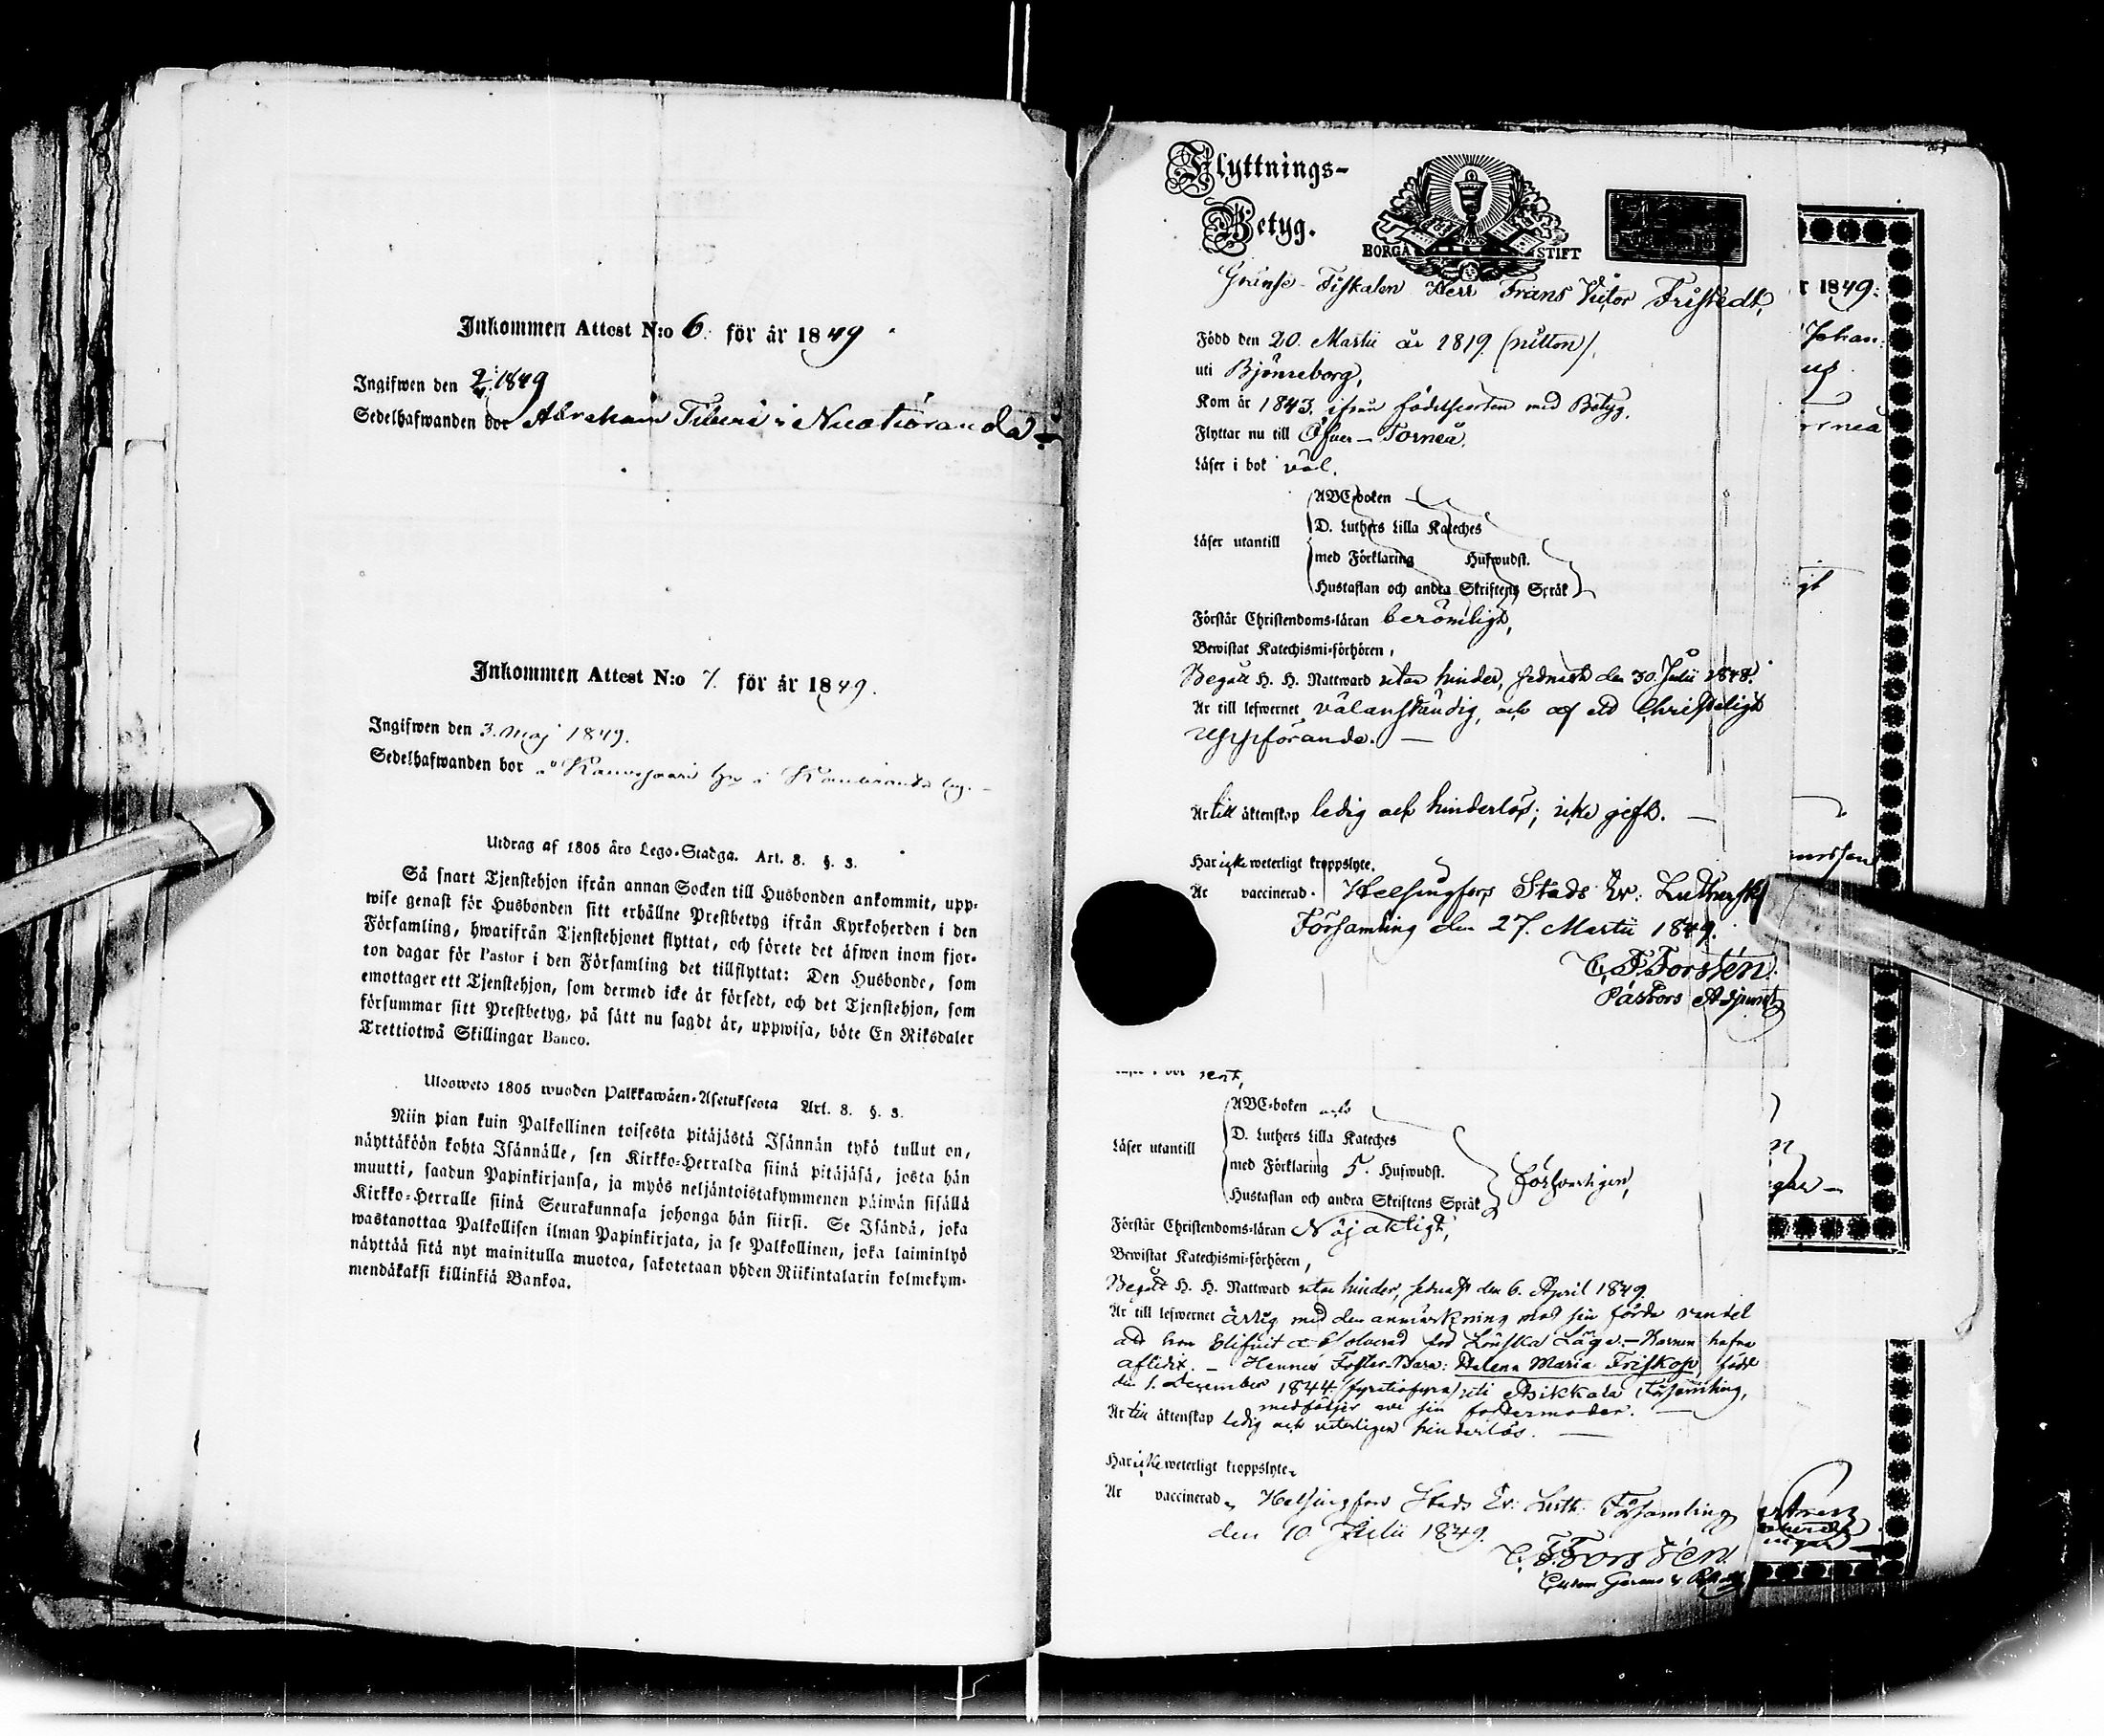 Inkommen Attest N:o 6. för år 1849
Ingifwen den 1849
Sedelhafwanden bor Abraham i
Inkommen Attest N:o 7. för år 1849.
Ingifwen den 3. Maj 1849.
Sedelhafwanden bor
Utdrag af 1805 års Lego-Stadga. Art. 8. §. 3.
Så snart Tjenstehjon ifrån annan Socken till Husbonden ankommit, upp-
wise genast för Husbonden sitt erhållne Prestbetyg ifrån Kyrkoherden i den
Församling, hwarifrån Tjenstehjonet flyttat, och förete det äfwen inom fjor-
ton dagar för Pastor i den Församling det tillflyttat: Den Husbonde, som
emottager ett Tjenstehjon, som dermed icke är försedt, och det Tjenstehjon, som
försummar sitt Prestbetyg, på sätt nu sagdt är, uppwisa, böte En Riksdaler
Trettiotwå Skillingar Banco.
Ulosweto 1805 wuoden Palkkawäen-Asetuksesta Art. 8. §. 3.
Niin pian kuin Palkollinen toisesta pitäjästä Isännän tykö tullut on,
näyttäköön kohta Isännälle, sen Kirkko-Herralda siinä pitäjäsä, josta hän
muutti, saadun Papinkirjansa, ja myös neljäntoistakymmenen päiwän sisällä
Kirkko-Herralle siinä Seurakunnasa johonga hän siirsi. Se Isändä, joka
wastanottaa Palkollisen ilman Papinkirjata, ja se Palkollinen, joka laiminlyö
näyttää sitä nyt mainitulla muotoa, sakotetaan yhden Riikintalarin kolmekym-
mendäkaksi killinkiä Bankoa.
Flyttnings-
Betyg.
BORGÅ STIFT
Gränse-Fiskalen Herr Frans Victor Fristedt,
Född den 20. Martii år 1819. (nitton),
uti Björneborg,
Kom år 1843. ifrån födelseorten med Betyg.
Flyttar nu till Öfver-Torneå.
Läser i bok väl.
ABC-boken
D. Luthers Lilla Kateches
Läser utantill
med Förklaring Hufwudst.
Hustaflan och andra Skriftens Språk
Förstår Christendoms-läran berömligt,
Bewistat Katechismi-förhören,
Begått H. H. Nattward utan hinder, sednast den 30. Julii 1848.
Är till lefwernet välanständig, och af ett Christeligt
uppförande.
Är till äktenskap ledig och hinderlös; icke gift.
Har icke weterligt kroppslyte.
Är vaccinerad. Helsingfors Stads Ev: Lutherska
Församling den 27. Martii 1849.
C. F. Forstén.
Pastors Adjunct
ABC-boken och
D. Luthers Lilla Kateches
Läser utantill
med Förklaring 5. Hufwudst.
försvarligen,
Hustaflan och andra Skriftens Språk
Förstår Christendoms-läran Nöjaktligt,
Bewistat Katechismi-förhören,
Begått H. H. Nattward utan hinder, sednast den 6. April 1849.
Är till lefwernet ärlig med den anmärkning mot sin förda vandel
att hon blifvit absolverad för Lönska Läge. Barnen hafva
aflidit. Hennes Foster-Barn: Helena Maria Friskop, född
den 1. December 1844. (fyratiofyra) uti Asikkala Församling,
medföljer sin fostermoder.
Är till äktenskap ledig och veterligen hinderlös.
Har icke weterligt kroppslyte.
Är vaccinerad. Helsingfors Stads Ev: Luth. Församling
den 10. Julii 1849.
C. F. Forstén.
1849.
Johan